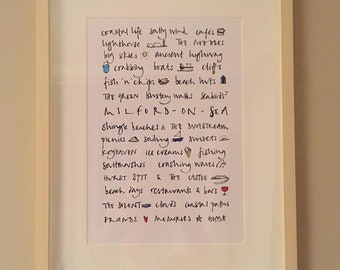 coastal life salty wind cafés
lighthouse THE NEEDLES
big skies ancient highway
crabbing boats cliffs
fish 'n' chips beach huts
THE GREEN blustery walks seabirds
MILFORD-ON-SEA
shingle beaches & THE DANESTREAM
picnics sailing sunsets
KEYHAVEN ice creams fishing
saltmarshes crashing waves
HURST SPIT & THE CASTLE
beach days restaurants & bars
THE SOLENT clouds coastal paths
FRIENDS MEMORIES HOME